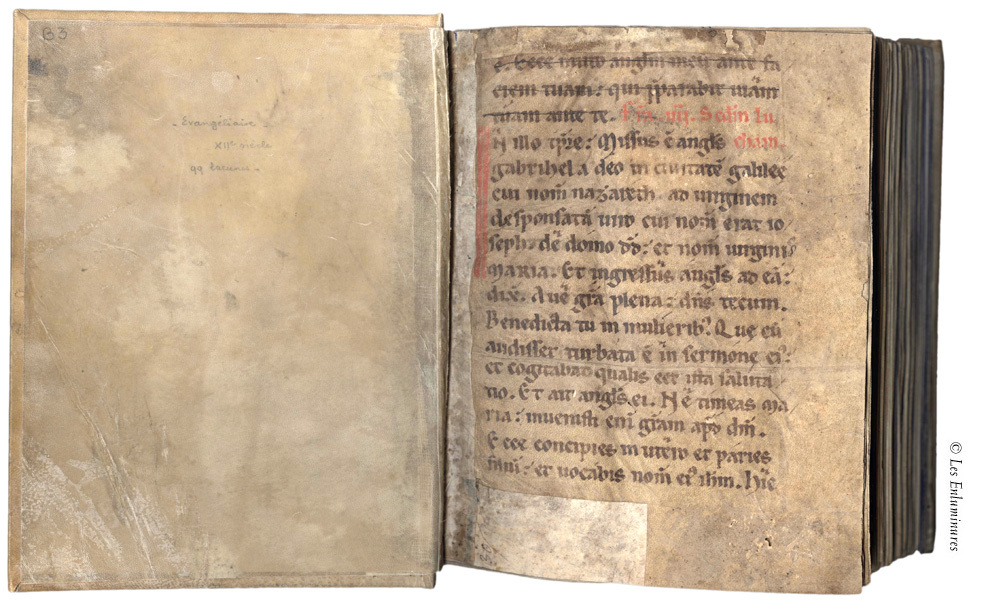 B3
- Evangéliaire -
XIIe siècle
99
e. Ecce mitto anglm meū ante fa
ciem tuam: qui p̄parabit uiam
tuam ante te. Fr̄a. iiij. Scdm lu
N illo tp̄re: Missus ē angl's cham.
gabrihel a deo in ciuitatē galilee
cui nom̄ nazareth. ad uirginem
desponsatā uiro cui nom̄ erat io
seph. de domo dd̄: et nom̄ uirgini
MARIA. Et ingressus angl's ad eā:
dix̄. Aue gr̄a plena: dn̄s tecum.
Benedicta tu in mulierib;. Que cū
audisset turbata ē in sermone ei':
et cogitabat qualis eēt ista saluta
tio. Et ait angl's ei. Ne timeas ma
ria: inuenisti eni gr̄am apd dm̄.
Ecce concipies in utero et paries
filiū: et uocabis nom̄ ei' ihm. Hic
© Les Enluminures